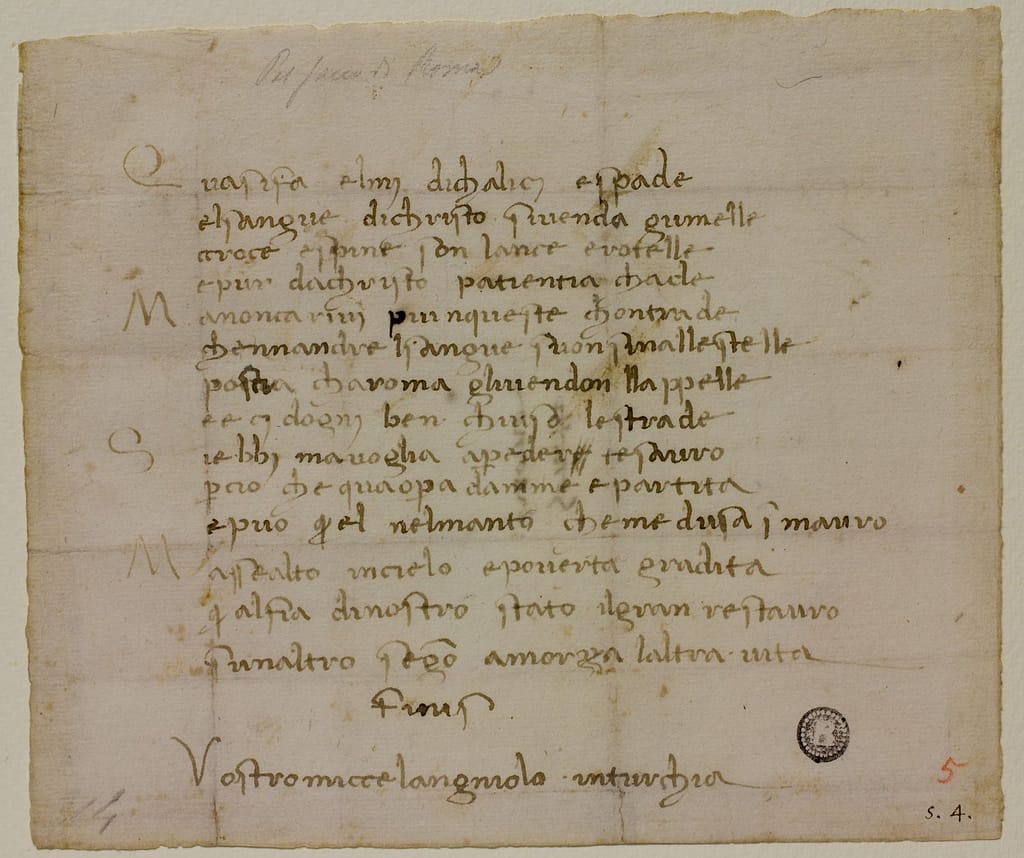 Qua si fa elmi dichalici espade
elsangue dichristo siuenda gumelle
croce espine son lance erotelle
epur dachristo patientia chade
Ma noncarivi piu nqueste chontrade
chennandre lsangue suo nsinallestelle
poscia charoma gliuendon llappelle
eec i dogni ben chiuso lestrade
Siebbi mavoglia a perder tesauro
p cio che qua opa damme e partita
epuo q el nelmanto che medusa i mauro
Ma sealto incielo epouerta gradita
q al fia dinostro stato ilgran restauro
sunaltro segō amorza laltra uita
Finis
Vostro miccelangniolo inturchia
5
s. 4.
14